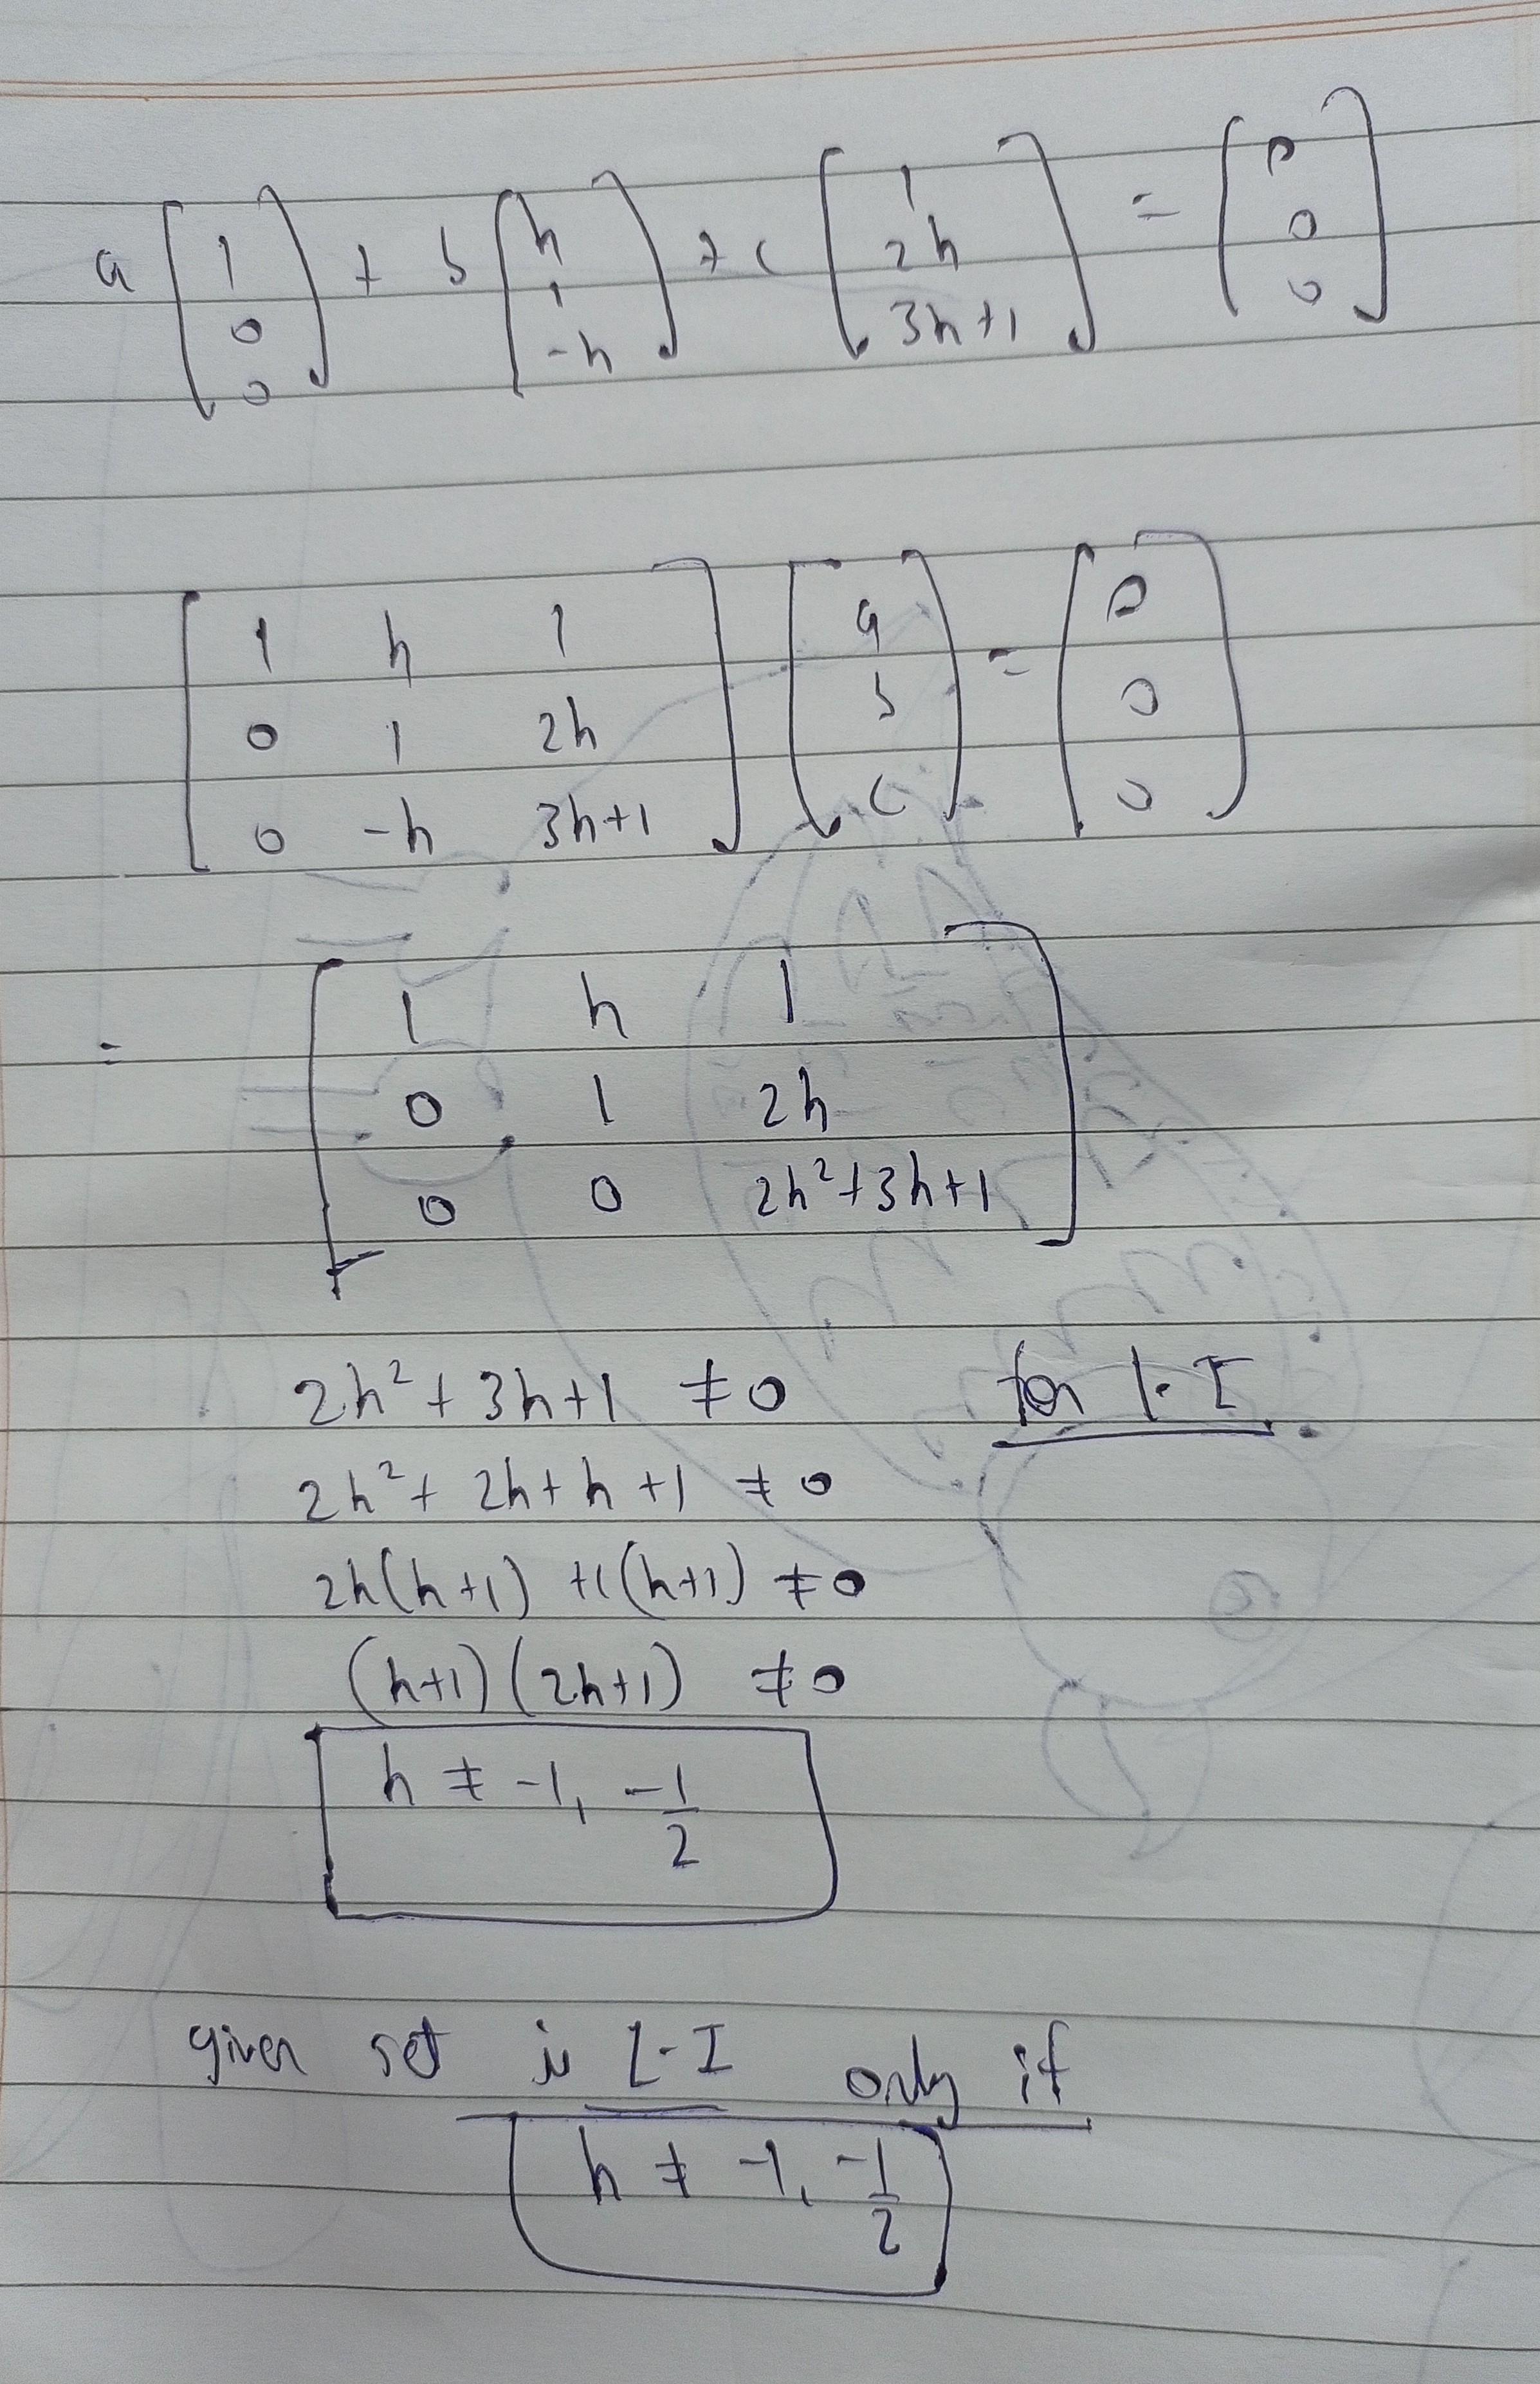 a [1 0 0] + b [h 1 -h] + c [1 2h 3h+1] = [0 0 0]
[1 h 1
0 1 2h
0 -h 3h+1] [a b c] = [0 0 0]
= [1 h 1
0 1 2h
0 0 2h²+3h+1]
2h²+3h+1 ≠0 for L.I.
2h²+2h+h+1 ≠0
2h(h+1) +1(h+1) ≠0
(h+1)(2h+1) ≠0
h ≠ -1, -1/2
given set is L.I only if
h ≠ -1, -1/2